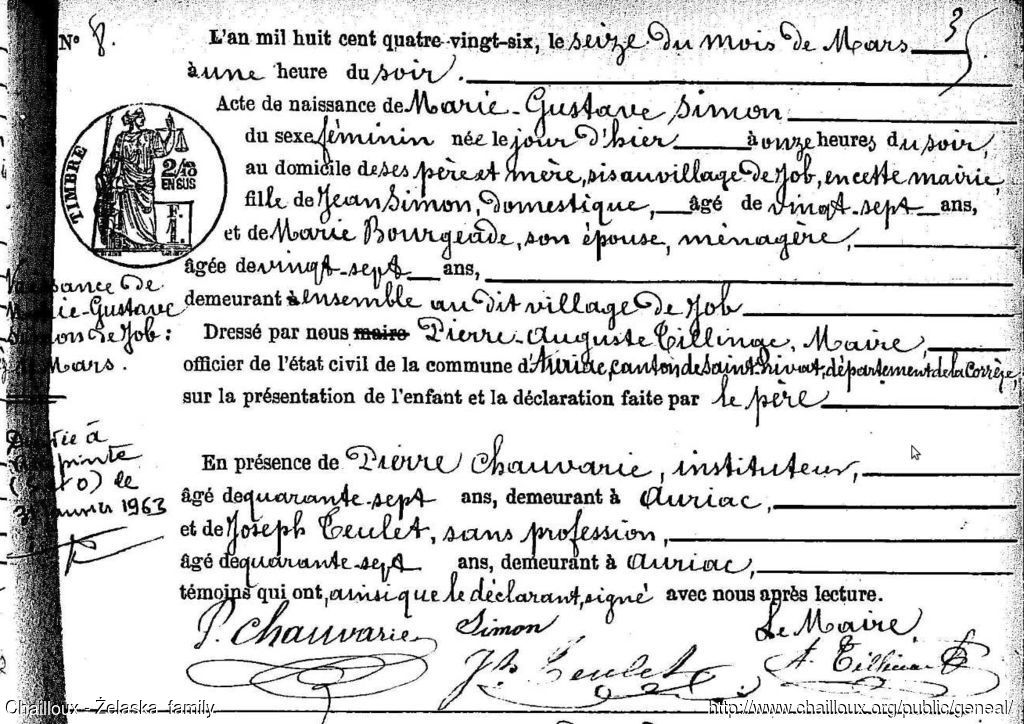 3
N° 8.
L'an mil huit cent quatre-vingt-six, le seize du mois de Mars
à une heure du soir.
Acte de naissance de Marie-Gustave Simon
du sexe féminin née le jour d'hier à onze heures du soir,
au domicile de ses père et mère, sis au village de Job, en cette mairie,
fille de Jean Simon, domestique, âgé de vingt-sept ans,
et de Marie Bourgeade, son épouse, ménagère,
âgée de vingt-sept ans,
demeurant à ensemble au dit village de Job
Dressé par nous maire Pierre-Auguste Tillinac, Maire,
officier de l'état civil de la commune d'Auriac, canton de Saint-Privat, département de la Corrèze,
sur la présentation de l'enfant et la déclaration faite par le père
En présence de Pierre Chauvarie, instituteur,
âgé de quarante-sept ans, demeurant à Auriac,
et de Joseph Teulet, sans profession,
âgé de quarante-sept ans, demeurant à Auriac,
témoins qui ont, ainsi que le déclarant, signé avec nous après lecture.
P. Chauvarie
Simon
Le Maire,
Jh Teulet
A. Tillinac
TIMBRE
2/10
EN SUS
F.
1.
Naissance de
Marie-Gustave
Simon de Job:
Mars.
à
(Lot) le
janvier 1963
Chailloux - Żelaska family
http://www.chailloux.org/public/geneal/